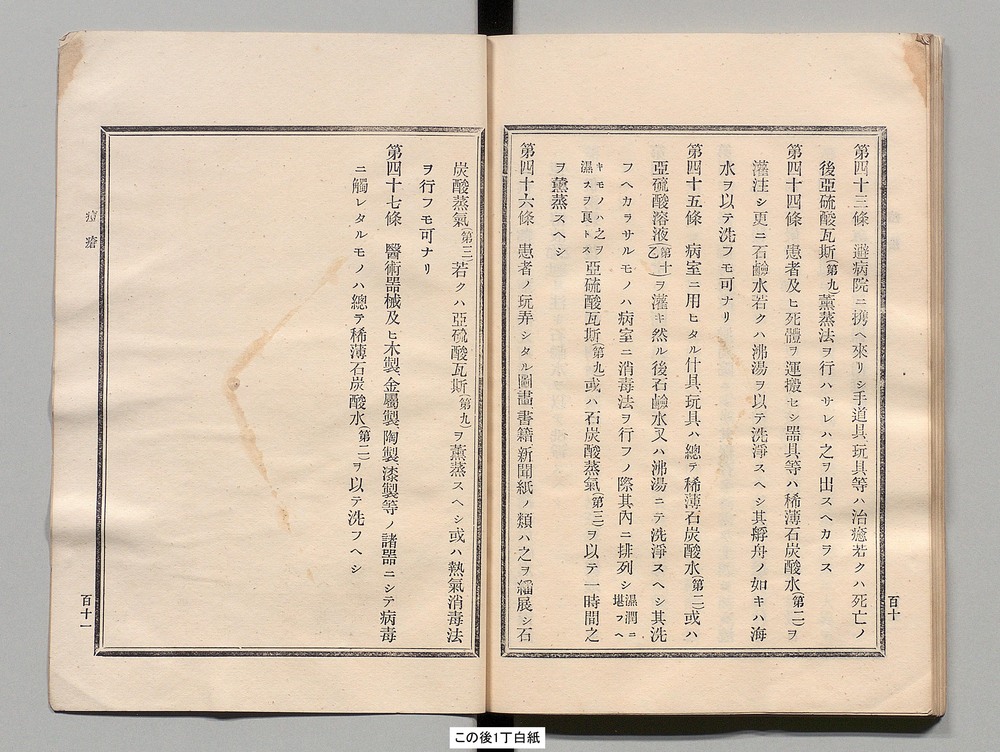 第四十三條　避病院ニ携ヘ來リシ手道具玩具等ハ治癒若クハ死亡ノ
後亞硫酸瓦斯(第九)薰蒸法ヲ行ハサレハ之ヲ出スヘカラス
第四十四條　患者及ヒ死體ヲ運搬セシ器具等ハ稀薄石炭酸水(第二)ヲ
灌注シ更ニ石鹼水若クハ沸湯ヲ以テ洗淨スヘシ其艀舟ノ如キハ海
水ヲ以テ洗フモ可ナリ
第四十五條　病室ニ用ヒタル什具玩具ハ總テ稀薄石炭酸水(第二)或ハ
亞硫酸溶液(第十乙)ヲ灌キ然ル後石鹼水又ハ沸湯ニテ洗淨スヘシ其洗
フヘカラサルモノハ病室ニ消毒法ヲ行フノ際其內ニ排列シ濕潤ニ堪フヘ
キモノハ之ヲ濕スヲ良トス亞硫酸瓦斯(第九)或ハ石炭酸蒸氣(第三)ヲ以テ一時間之
ヲ薰蒸スヘシ
第四十六條　患者ノ玩弄シタル圖畫書籍新聞紙ノ類ハ之ヲ繙展シ石
百十
炭酸蒸氣(第三)若クハ亞硫酸瓦斯(第九)ヲ薰蒸スヘシ或ハ熱氣消毒法
ヲ行フモ可ナリ
第四十七條　醫術器械及ヒ木製金屬製陶製漆製等ノ諸器ニシテ病毒
ニ觸レタルモノハ總テ稀薄石炭酸水(第二)ヲ以テ洗フヘシ
痘瘡
百十一
この後1丁白紙